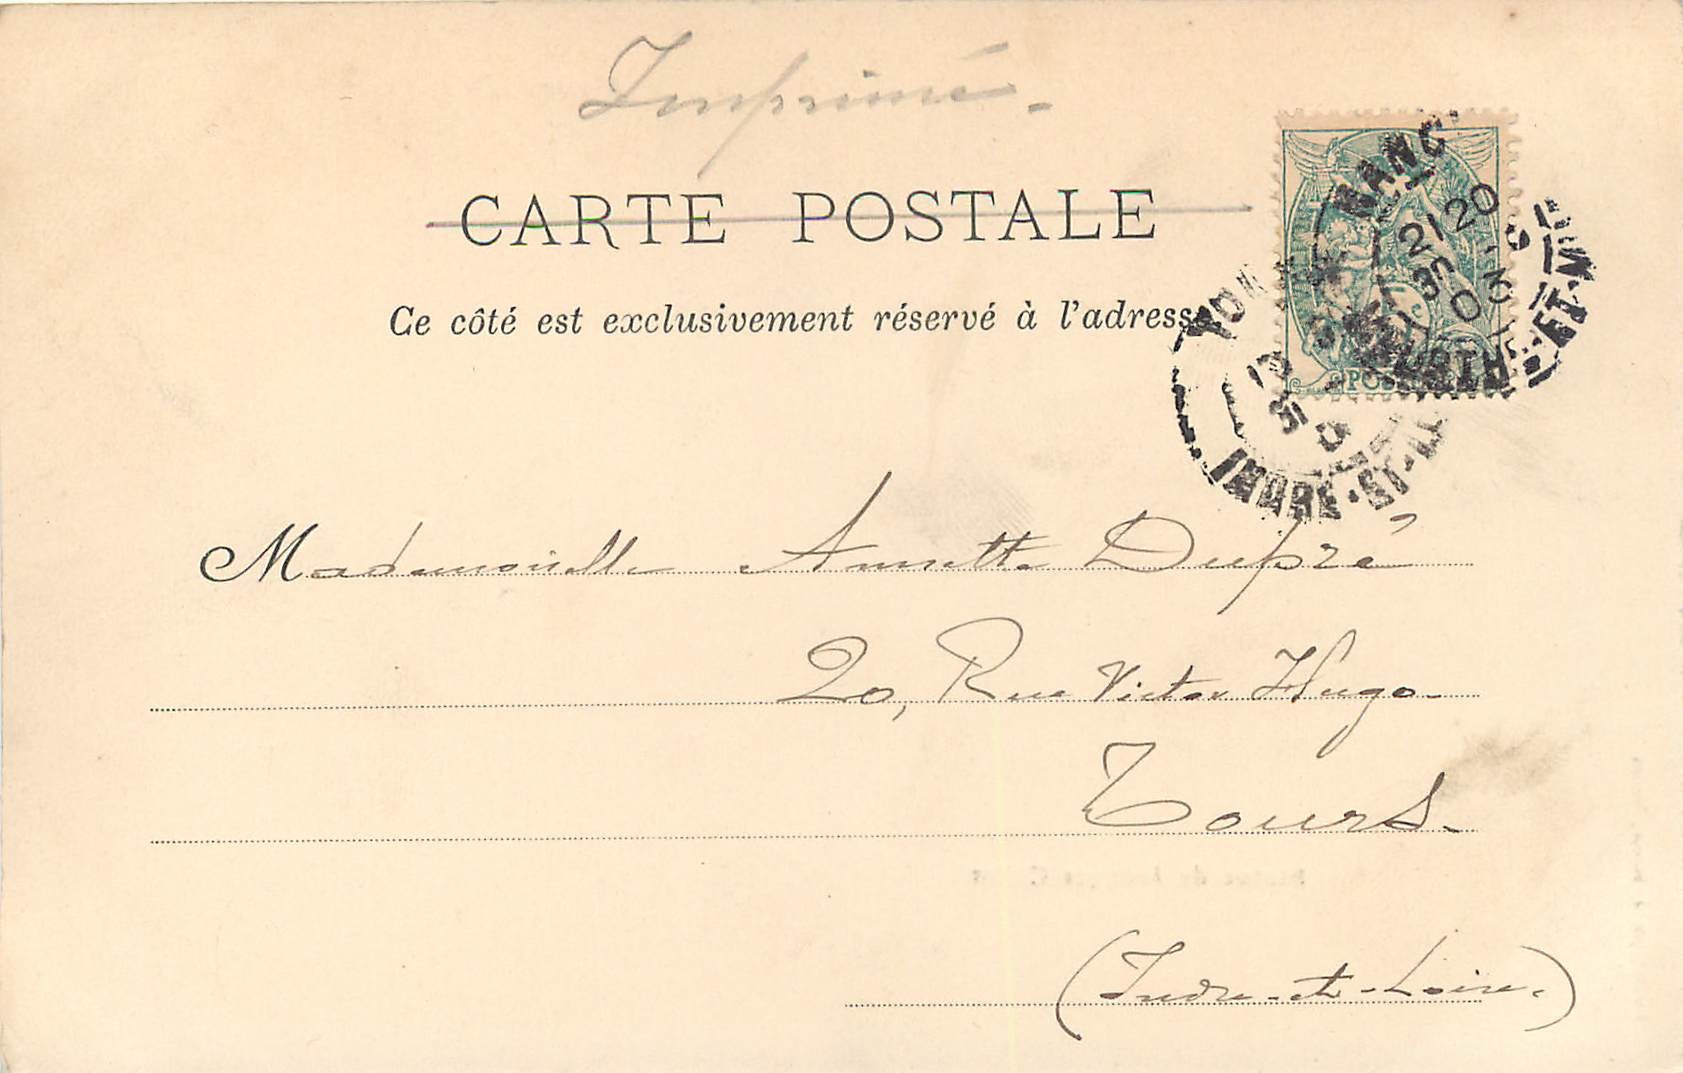 Imprimé.
CARTE POSTALE
Ce côté est exclusivement réservé à l'adresse
NANC
21 20
03
INDRE-ET-
ET-M
POS
Mademoiselle Annette Dupré
20, Rue Victor Hugo
Tours.
(Indre-et-Loire.)